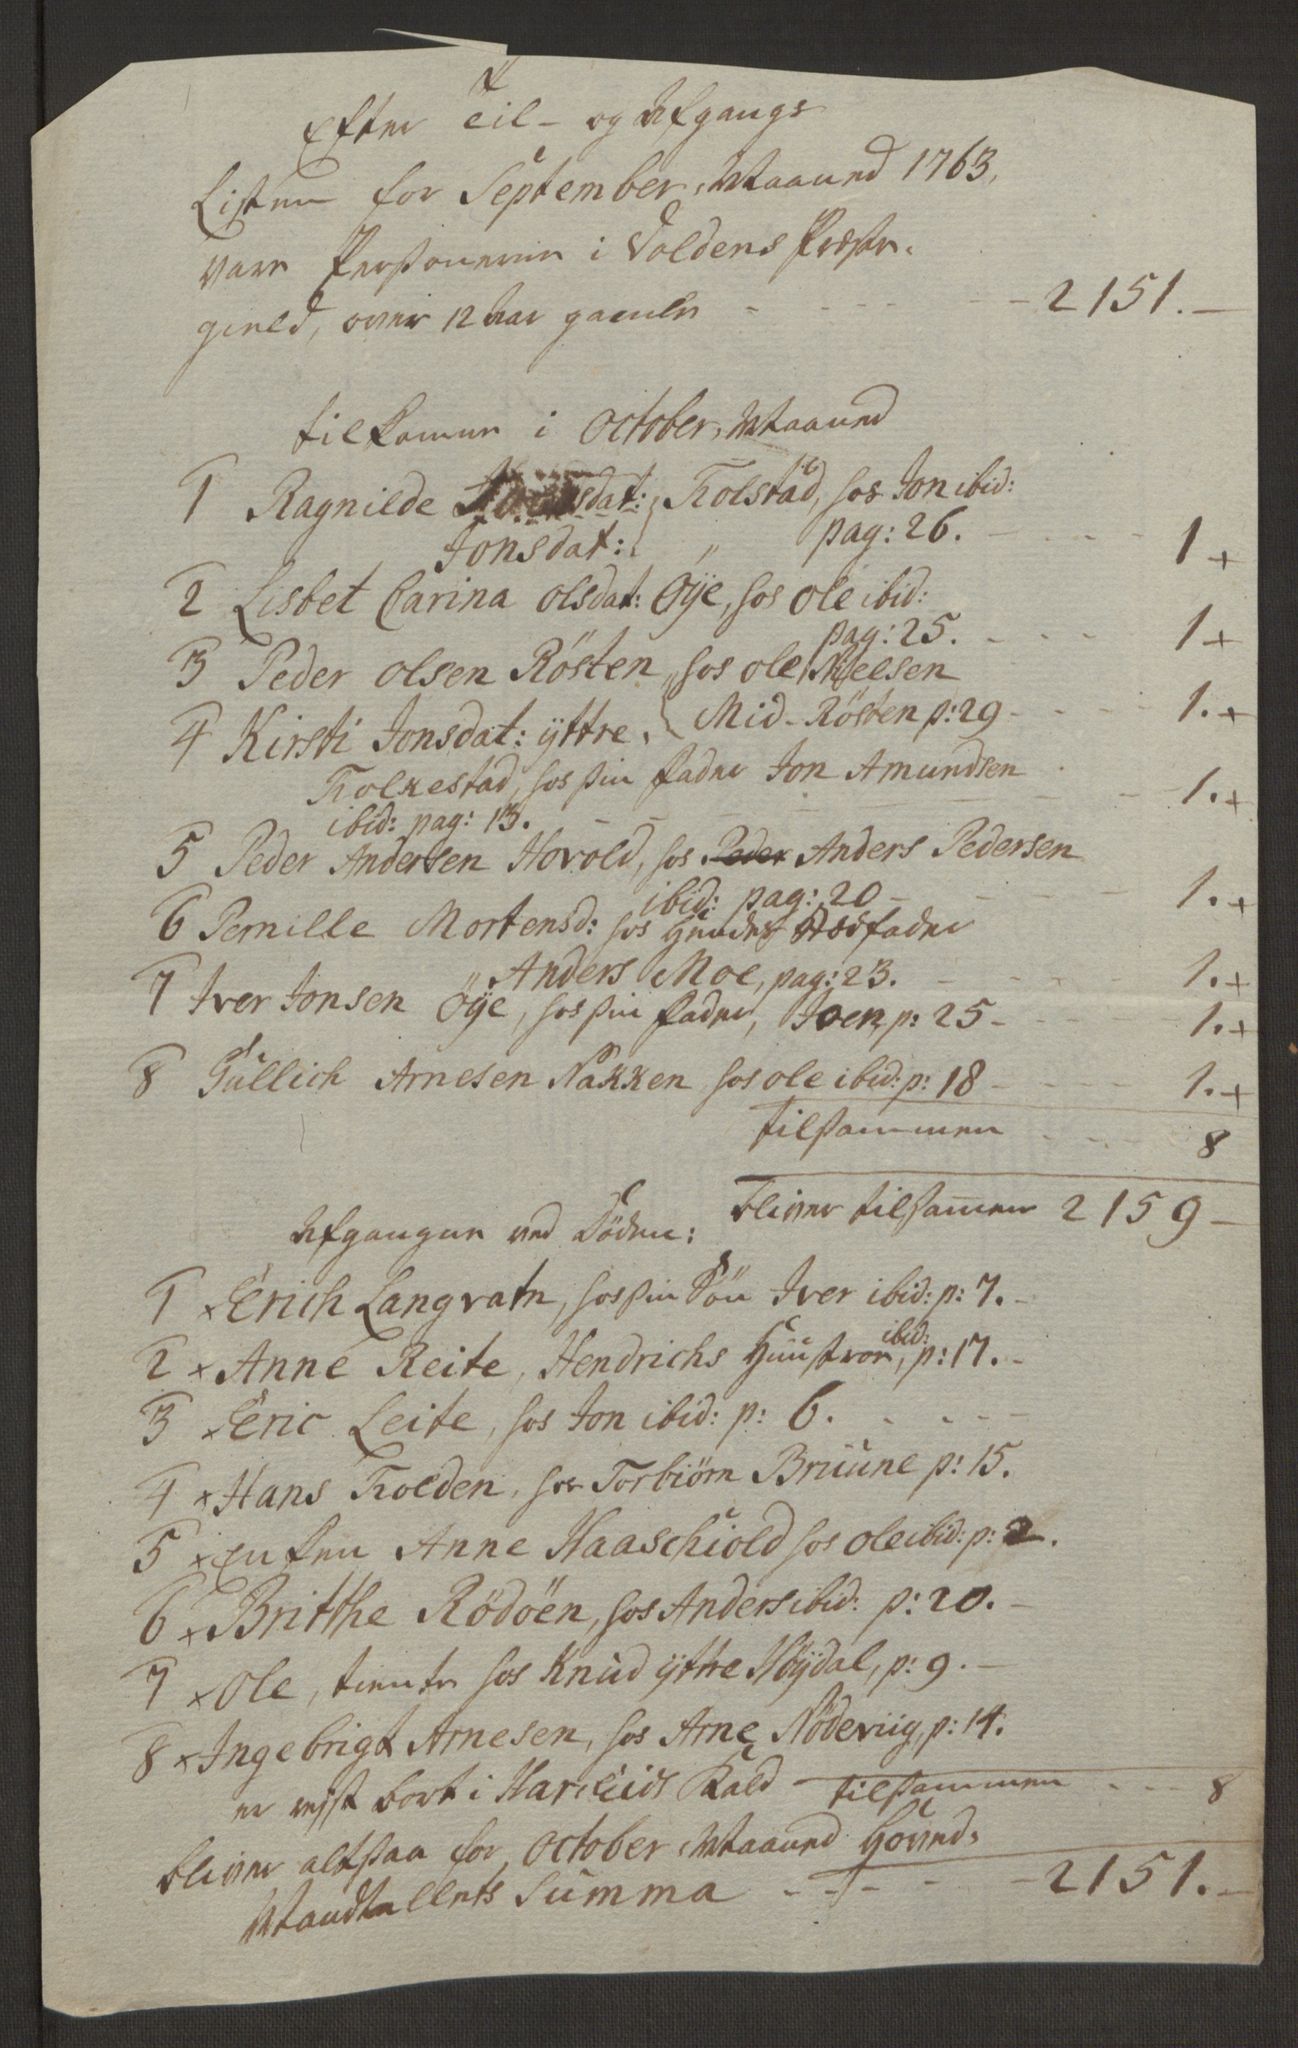 Efter Til- og Afgangs
Listen for September Maaned 1763,
vare Personerne i Voldens Præste-
gield, over 12 Aar gamle - - - - 2151.-
tilkomne i October Maaned
1 Ragnilde Kolstad, hos Jon ibid:
Jonsdat: " pag: 26. - - - 1 +
2 Lisbet Carina olsdat: Öÿe, hos ole ibid:
pag: 25. - - - 1 +
3 Peder olsen Rösten, hos ole Nielsen
Mid-Rösten p: 29 - - - 1. +
4 Kirsti Jonsdat: ÿttre
Folkestad, hos sin fader Jon Amundsen
ibid: pag: 13. - - - 1. +
5 Peder Andersen Hovold, hos Peder Anders Pedersen
ibid: pag: 20 - - - 1. +
6 Pernille Mortensd: hos hendes Stedfader
Anders Moe, pag: 23. - - - 1. +
7 Iver Jonsen Öÿe, hos sin fader, Joen p: 25 - - 1. +
8 Gullich Arnesen Nakken hos ole ibid: p: 18 - - - 1. +
tilsammen - - - 8
bliver tilsamen 2159 -
Afgangne ved Döden:
1 x Erich Langvatn, hos sin Sön Iver ibid: p: 7. -
2 x Anne Reite, Hendrichs Huustroe, ibid: p: 17. -
3 x Eric Leite, hos Jon ibid: p: 6. - - -
4 x Hans Folden, hos Torbiörn Bruune p: 15.
5 x Enken Anne Haaschiold hos ole ibid: p: 2.
6 x Britthe Rödöen, hos Anders ibid: p: 20. -
7 x Ole, tiente hos Knud ÿttre Höÿdal, p: 9. -
8 x Ingebrigt Arnesen, hos Arne Nödeviig, p: 14.
er reist bort i Hareids Kald tilsammen - - - 8
bliver altsaa for October Maaned Hoved-
Mandtallets Summa - - - - 2151. -